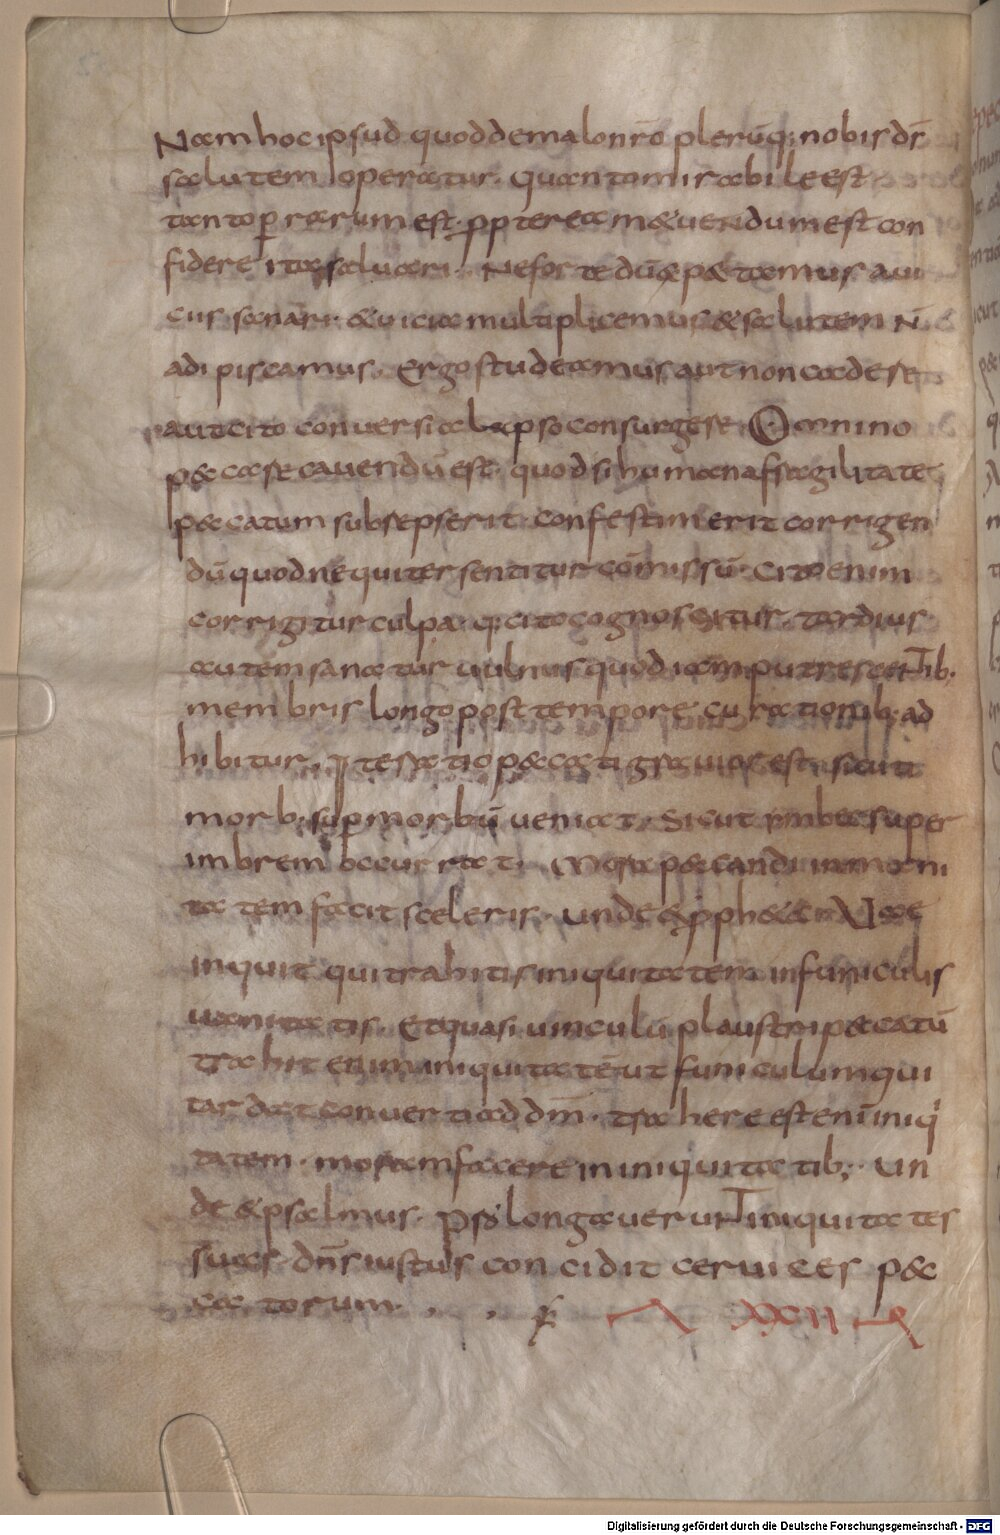 Nam hoc ipsud quod de malo nr̄o plerūq; nobis ds̄
salutem operatur. quantomirabile est
tanto p̱ rarum est. pp tereamɛuendum est con
fidere ita saluari. Neforte dū & p&tamus
cus sanari. & uicia multiplicemus & salutem N̄
adipiscamus. Ergo studeamus aut non cadese
aut cito conuersi a lapso consurgese. Omnino
p&case cauendū est. quod si humana fragilitate
p&catum subsepserit. confestim erit corrigen
dū quod nequiter sentitur cōmissū. Cito enim
corrigitur culpa. q; cito cognoscitur. tardius
autem sanatur uulnus quod iam putrescentib.
membris longo post tempore curationib; ad
hibitur. Itesatio p&cati grauior est. sicut
morb; sup morbū ueniat. Sicut imber super
imbrem occurrat. Mora p&candi inmani
tatem facit sceleris. unde & pph&a Uae
inquit qui trahitis iniquitatem in funiculis
uanitatis. Et quasi uinculū plaustri p&catū
trahit enim iniquitatē ut funiculum qui
tardat conuerti ad dn̄m. trahere est enī iniq
tatem. moram facere in iniquitatib;. Un
de & psalmus. Pso longauerunt iniquitates
suas. dn̄s iustus concidit ceruices p&c
catorum.
XXII
Digitalisierung gefördert durch die Deutsche Forschungsgemeinschaft - DFG